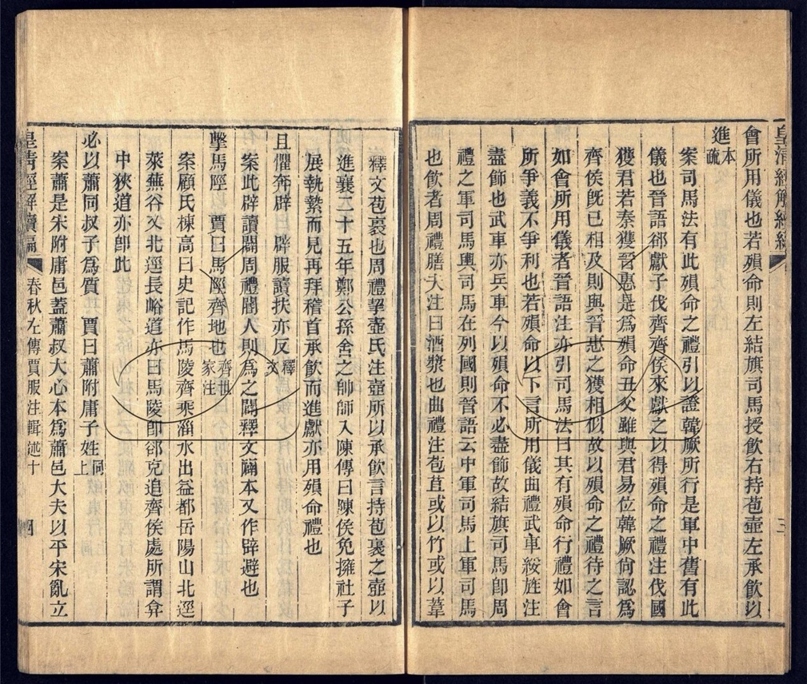 皇清經解續編
三
會所用儀也若殞命則左結旗司馬授飲右持苞壺左承飲以
進本疏
案司馬法有此殞命之禮引以證韓厥所行是軍中舊有此
儀也晉語郤獻子伐齊齊侯來獻之以得殞命之禮注伐國
獲君若秦獲晉惠是爲殞命丑父雖與君易位韓厥尙認爲
齊侯旣已相及則與晉惠之獲相似故以殞命之禮待之言
如會所用儀者晉語注亦引司馬法曰其有殞命行禮如會
所爭義不爭利也若殞命以下言所用儀曲禮武車綏旌注
盡飾也武車亦兵車今以殞命不必盡飾故結旗司馬卽周
禮之軍司馬輿司馬在列國則晉語云中軍司馬上軍司馬
也飲者周禮膳夫注曰酒漿也曲禮注苞苴或以竹或以葦
釋文苞裹也周禮挈壺氏注壺所以承飲言持苞裹之壺以
進襄二十五年鄭公孫舍之帥師入陳傳曰陳侯免擁社子
展執縶而見再拜稽首承飲而進獻亦用殞命禮也
且懼奔辟 辟服讀扶亦反釋文
案此辟讀闢周周禮閽人則爲之闢釋文闢本又作辟避也
擊馬陘 賈曰馬陘齊地也齊世家注
案顧氏棟高曰史記作馬陵齊乘淄水出益都岳陽山北逕
萊蕪谷又北逕長峪道亦曰馬陵卽郤克追齊侯處所謂弇
中狹道亦卽此
必以蕭同叔子爲質 賈曰蕭附庸子姓同上
案蕭是宋附庸邑蓋蕭叔大心本爲蕭邑大夫以平宋亂立
皇清經解續編 春秋左傳賈服注輯述十 四